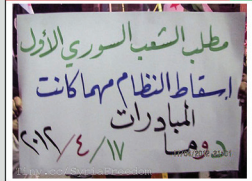 مطلب الشعب السوري الأول
إسقاط النظام مهما كانت
المبادرات
دوما
٢٠١٢/٤/١٧